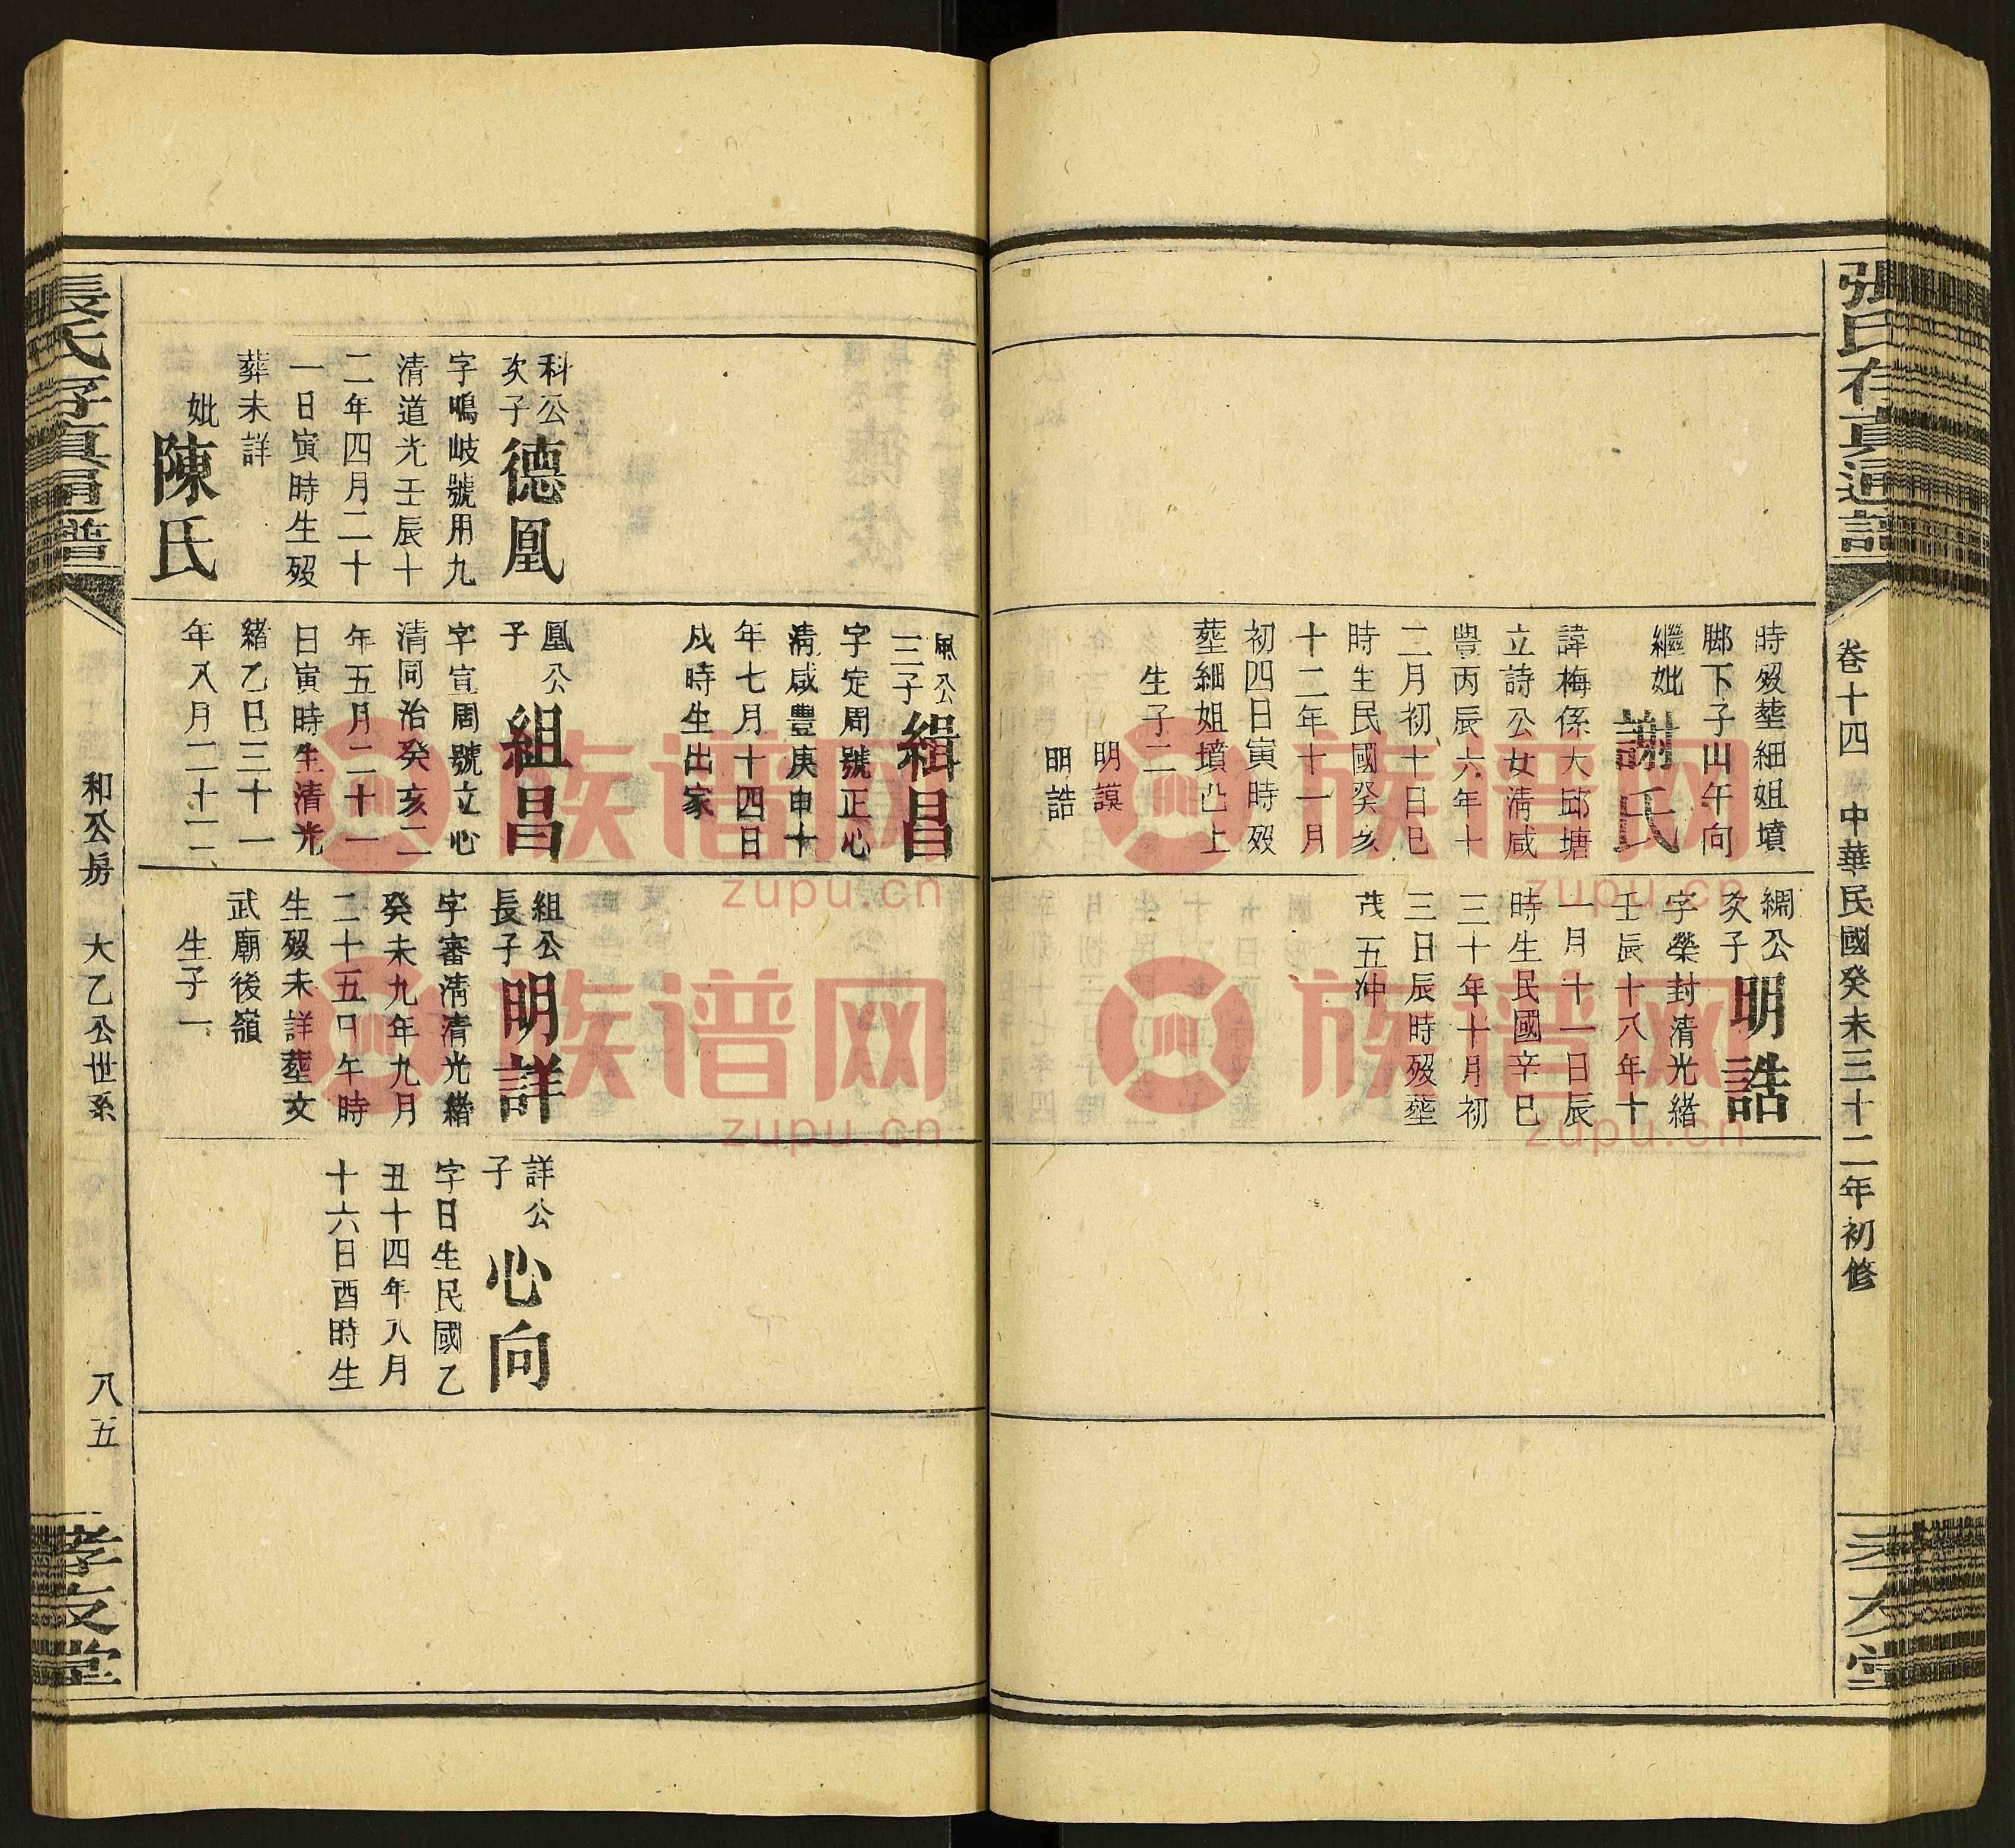 張氏存真通譜
卷十四
中華民國癸未三十二年初修
時歿塟細姐墳
脚下子山午向
繼妣
謝氏
諱梅係大邱塘
立詩公女清咸
豐丙辰六年十
二月初十日巳
時生民國癸亥
十二年十一月
初四日寅時歿
塟細姐墳凸上
生子二
明謨
明誥
綱公
次子
明誥
字榮封清光緒
壬辰十八年十
一月十一日辰
時生民國辛巳
三十年十月初
三日辰時歿塟
茂一五冲
風公
三子
緝昌
字定周號正心
清咸豐庚申十
年七月十四日
戌時生出家
科公
次子
德凰
字鳴岐號用九
清道光壬辰十
二年四月二十
一日寅時生歿
葬未詳
妣
陳氏
凰公
子
組昌
字宣周號立心
清同治癸亥二
年五月二十一
日寅時生清光
緒乙巳三十一
年八月二十二
組公
長子
明詳
字審清清光緒
癸未九年九月
二十五日午時
生歿未詳塟文
武廟後嶺
生子一
詳公
子
心向
字日生民國乙
丑十四年八月
十六日酉時生
張氏存真通譜
和公房
大乙公世系
八五
孝友堂
族谱网
zupu.cn
族谱网
zupu.cn
族谱网
zupu.cn
族谱网
zupu.cn